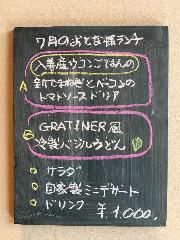 7月のおとな様ランチ
入善産ウコンごはんの
A 新たまねぎとベーコンの
トマトソースドリア
B GRATINER風
冷製バジルうどん
サラダ
自家製ミニデザート
ドリンク
¥.1,000.